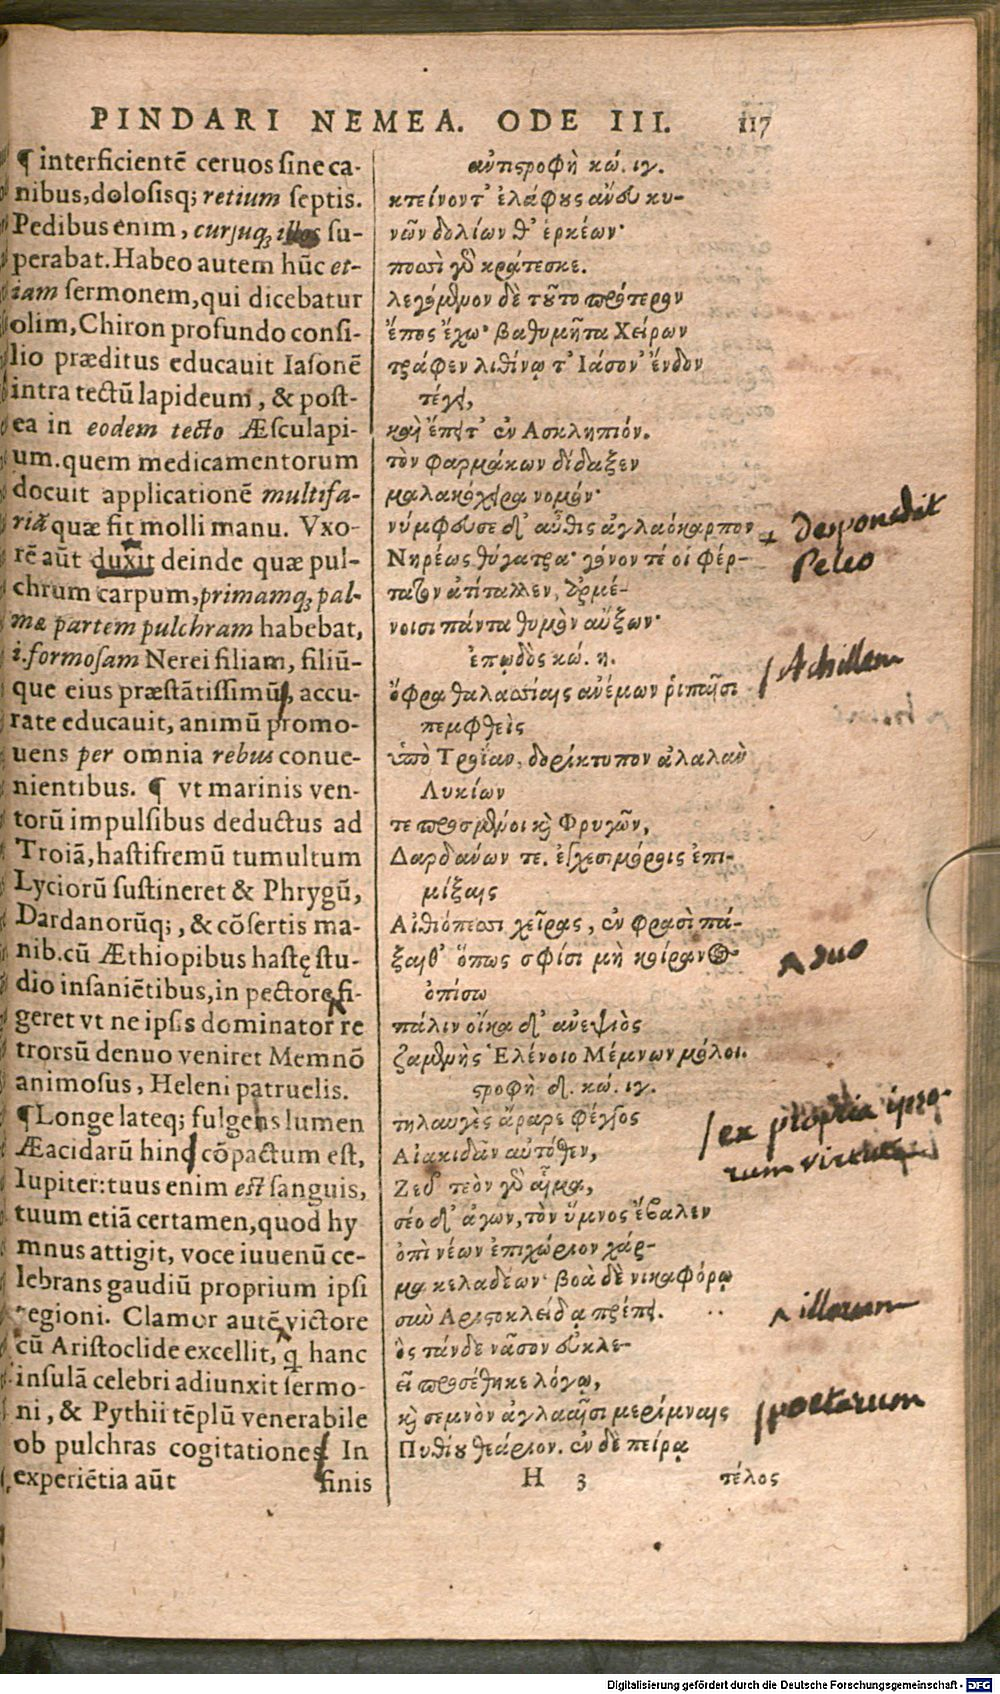 PINDARI NEMEA. ODE III. 117
¶ interficientē ceruos sine ca-
nibus, dolosisq; retium septis.
Pedibus enim, cursuq; illos su-
perabat. Habeo autem hūc et-
iam sermonem, qui dicebatur
olim, Chiron profundo consi-
lio præditus educauit Iasonē
intra tectū lapideum, & post-
ea in eodem tecto Æsculapi-
um. quem medicamentorum
docuit applicationē multifa-
riā quæ fit molli manu. Vxo-
rē aūt duxit deinde quæ pul-
chrum carpum, primamq; pal-
mæ partem pulchram habebat,
i. formosam Nerei filiam, filiū-
que eius præstātissimū, accu-
rate educauit, animū promo-
uens per omnia rebus conue-
nientibus. ¶ vt marinis ven-
torū impulsibus deductus ad
Troiā, hastifremū tumultum
Lyciorū sustineret & Phrygū,
Dardanorūq; , & cōsertis ma-
nib. cū Æthiopibus hastę stu-
dio insaniētibus, in pectore fi-
geret vt ne ipsis dominator re
trorsū denuo veniret Memnō
animosus, Heleni patruelis.
¶ Longe lateq; fulgens lumen
Æacidarū hinc cōpactum est,
Iupiter: tuus enim est sanguis,
tuum etiā certamen, quod hy
mnus attigit, voce iuuenū ce-
lebrans gaudiū proprium ipsi
regioni. Clamor autē victore
cū Aristoclide excellit, q hanc
insulā celebri adiunxit sermo-
ni, & Pythii tēplū venerabile
ob pulchras cogitationes. In
experiētia aūt finis
ἀντιστροφὴ κώ. ιγ.
κτείνοντ' ἐλάφους ἄνευ κυ-
νῶν δολίων θ' ἑρκέων·
ποσσὶ γὸ κράτεσκε.
λεγόμενον δὲ τοῦτο πρότερον
ἔπος ἔχω· βαθυμῆτα Χείρων
τράφεν λιθίνῳ τ' Ἰάσον' ἔνδον
τέγει,
καὶ ἔπειτ' ἐν Ἀσκληπιόν.
τὸν φαρμάκων δίδαξεν
μαλακόχειρα νομόν·
νύμφευσε δ' αὖθις ἀγλαόκαρπον
Νηρέως θύγατρα· γόνον τέ οἱ φέρ-
τατον ἀτίταλλεν, ἐν ἀρμέ-
νοισι πάντα θυμὸν αὔξων·
ἐπῳδὸς κώ. η.
ὄφρα θαλασσίαις ἀνέμων ῥιπαῖσι
πεμφθεὶς
ὑπὸ Τροΐαν, δορίκτυπον ἀλαλὰν
Λυκίων
τε προσμένοι καὶ Φρυγῶν,
Δαρδάνων τε. ἐγχεσιμόροις ἐπι-
μίξαις
Αἰθιόπεσσι χεῖρας, ἐν φρασὶ πά-
ξαιθ' ὅπως σφίσι μὴ κοίρανος
ὀπίσω
πάλιν οἴκαδ' ἀνεψιὸς
ζαμενὴς Ἑλένοιο Μέμνων μόλοι.
στροφὴ δ. κώ. ιγ.
τηλαυγὲς ἄραρε φέγγος
Αἰακιδᾶν αὐτόθεν,
Ζεῦ τεὸν γὸ αἷμα,
σέο δ' ἀγων, τὸν ὕμνος ἔβαλεν
ὀπὶ νέων ἐπιχώριον χάρ-
μα κελαδέων· βοὰ δὲ νικαφόρῳ
σὺν Ἀριστοκλείδᾳ πρέπει.
ὃς τάνδε νᾶσον εὐκλε-
εῖ προσέθηκε λόγῳ,
καὶ σεμνὸν ἀγλααῖσι μερίμναις
Πυθίου θεάριον. ἐν δὲ πείρᾳ
H 3 τέλος
+ desponedit
Peleo
/ Achillem
duo
/ ex propria ipso
rum virtute
illorum
/ poetarum
Digitalisierung gefördert durch die Deutsche Forschungsgemeinschaft - DFG